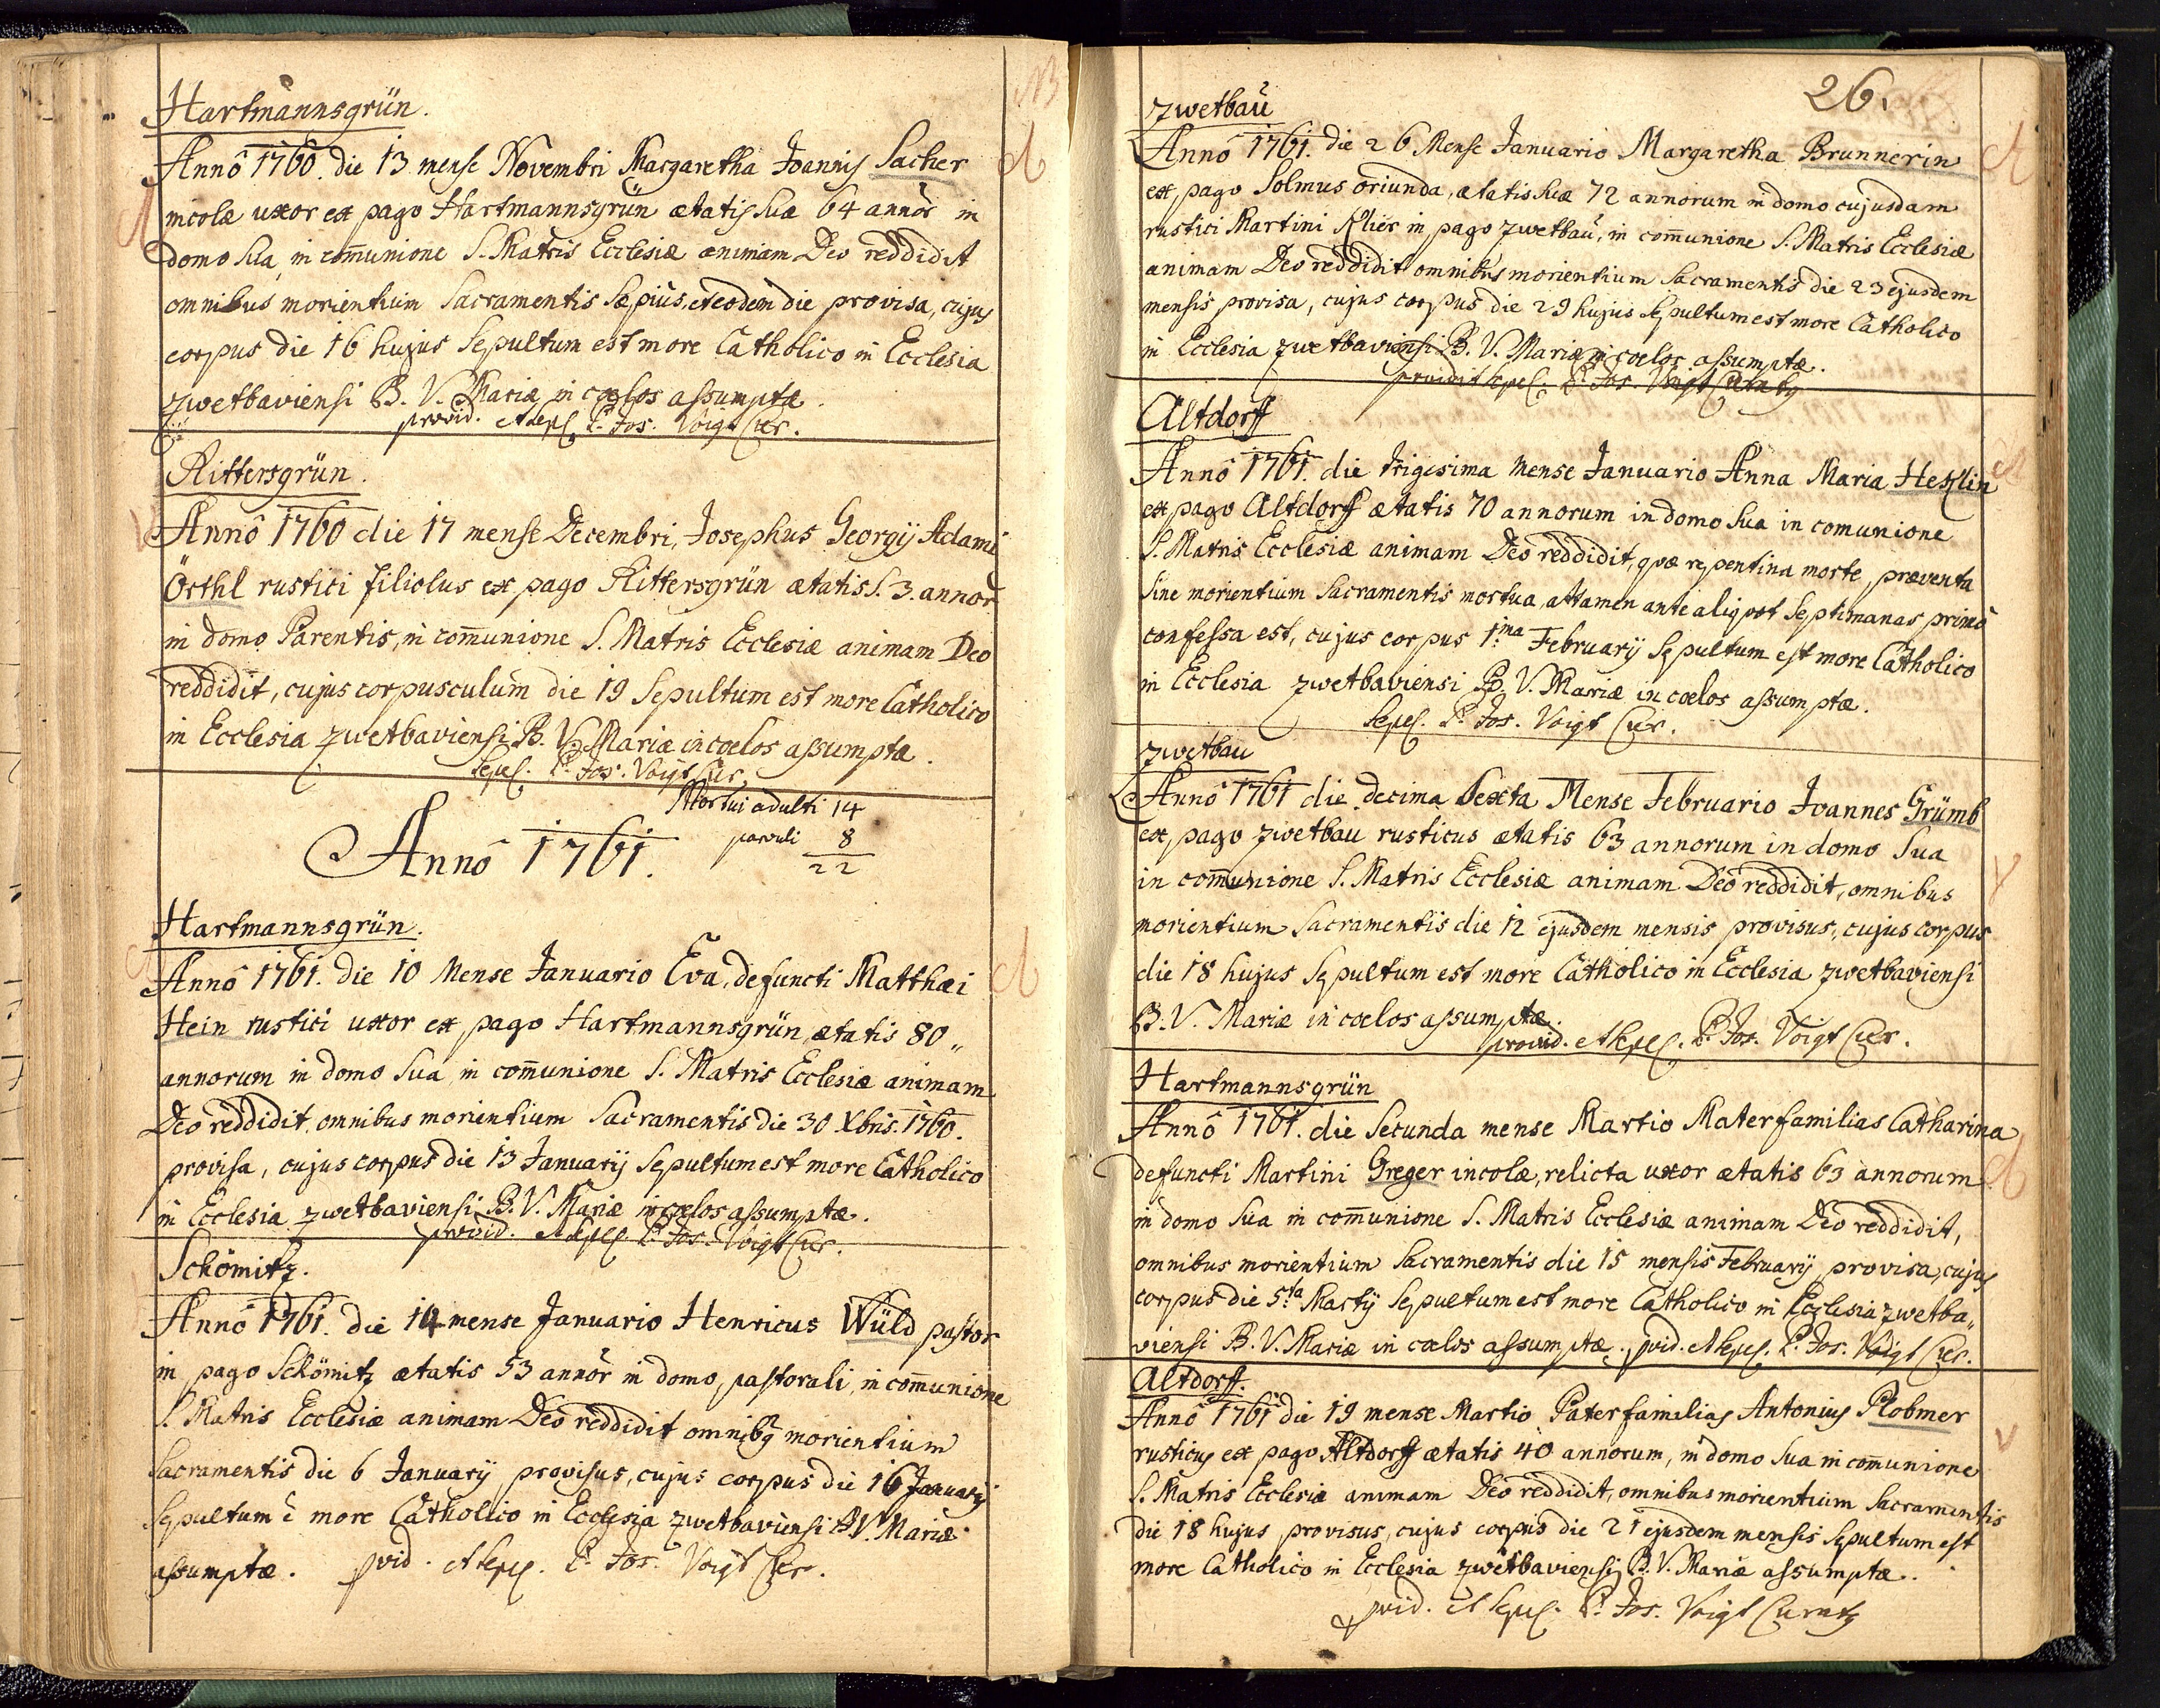 NB
Hartmannsgrün.
Annô 1760. die 13 mense Novembri Margaretha Joannis Sacher
incolæ uxor ex pago Hartmannsgrün ætatis suæ 64 annor in
domo sua, in com̄unione S. Matris Ecclesiæ animam Deo reddidit
omnibus morientium Sacramentis sæpius, et eodem die provisa, cujus
corpus die 16 hujus Sepultum est more Catholico in Ecclesia
zwetbaviensi B. V. Mariæ in cœlos assumptæ.
provid. et sepel. P. Jos. Voigt Cur.
Rittersgrün.
Annô 1760 die 17 mense Decembri, Josephus Georgij Adami
Örthl rustici filiolus ex pago Rittersgrün ætatis S. 3. annor
in domo Parentis, in com̄unione S. Matris Ecclesiæ animam Deo
reddidit, cujus corpusculum die 19 Sepultum est more Catholico
in Ecclesia zwetbaviensi B. V. Mariæ in cœlos assumptæ.
sepel. P. Jos. Voigt Cur.
Mortui adulti 14
parvuli 8
22
Annô 1761.
Hartmannsgrün.
Annô 1761. die 10 Mense Januario Eva, defuncti Matthæi
Hein rustici uxor ex pago Hartmannsgrün, ætatis 80„
annorum in domo sua, in com̄unione S. Matris Ecclesiæ animam
Deo reddidit, omnibus morientium Sacramentis die 30 Xbris. 1760.
provisa, cujus corpus die 13 Januarij Sepultum est more Catholico
in Ecclesia zwetbaviensi B. V. Mariæ in cœlos assumptæ.
provid. et sepel. P. Jos. Voigt Cur.
Schömitz.
Annô 1761. die 14 mense Januario Henricus Wüld pastor
in pago Schömitz ætatis 53 annor in domo pastorali, in com̄unione
S. Matris Ecclesiæ animam Deo reddidit omnibq morientium
Sacramentis die 6 Januarij provisus, cujus corpus die 16 Januarij
Sepultum ẽ more Catholico in Ecclesia zwetbaviensi B V. Mariæ
assumptæ. pvid. et sepel. P. Jos. Voigt Cur.
26.
Zwetbau
Annô 1761. die 26 Mense Januario Margaretha Brunnerin
ex pago Solmus oriunda, ætatis suæ 72 annorum in domo cujusdam
rustici Martini Klier in pago zwetbau, in com̄unione S. Matris Ecclesiæ
animam Deo reddidit omnibus morientium Sacramentis die 23 ejusdem
mensis provisa, cujus corpus die 29 hujus Sepultum est more Catholico
in Ecclesia zwetbaviensi B. V. Mariæ in cœlos assumptæ.
providit sepel. P. Jos. Voigt Curatq
Altdorff
Annô 1761. die trigesima Mense Januario Anna Maria Hetzlin
ex pago Altdorff ætatis 70 annorum in domo sua in comunione
S. Matris Ecclesiæ animam Deo reddidit, quæ repentina morte præventa
sine morientium Sacramentis mortua, attamen ante aliquot Septimanas primò
confessa est, cujus corpus 1.ma Februarij Sepultum est more Catholico
in Ecclesia zwetbaviensi B. V. Mariæ in cœlos assumptæ.
Sepel. P. Jos. Voigt Cur.
Zwetbau
Annô 1761 die decima Sexta Mense Februario Joannes Grümb
ex pago zwetbau rusticus ætatis 63 annorum in domo sua
in com̄unione S. Matris Ecclesiæ animam Deo reddidit, omnibus
morientium Sacramentis die 12 ejusdem mensis provisus, cujus corpus
die 18 hujus Sepultum est more Catholico in Ecclesia zwetbaviensi
B. V. Mariæ in cœlos assumptæ.
provid. et sepel. P. Jos. Voigt Cur.
Hartmannsgrün
Annô 1761. die Secunda mense Martio Materfamilias Catharina
defuncti Martini Greger incolæ, relicta uxor ætatis 63 annorum
in domo sua in com̄unione S. Matris Ecclesiæ animam Deo reddidit,
omnibus morientium Sacramentis die 15 mensis Februarij provisa, cujus
corpus die 5.ta Martij Sepultum est more Catholico in Ecclesia zwetba„
viensi B. V. Mariæ in cœlos assumptæ. pvid. et sepel. P. Jos. Voigt Cur.
Altdorff.
Annô 1761 die 19 mense Martio Paterfamilias Antonius Plobmer
rusticus ex pago Altdorff ætatis 40 annorum, in domo sua in com̄unione
S. Matris Ecclesiæ animam Deo reddidit, omnibus morientium Sacramentis
die 18 hujus provisus, cujus corpus die 21 ejusdem mensis Sepultum est
more Catholico in Ecclesia zwetbaviensi B. V. Mariæ assumptæ.
pvid. et sepel. P. Jos. Voigt Curatq